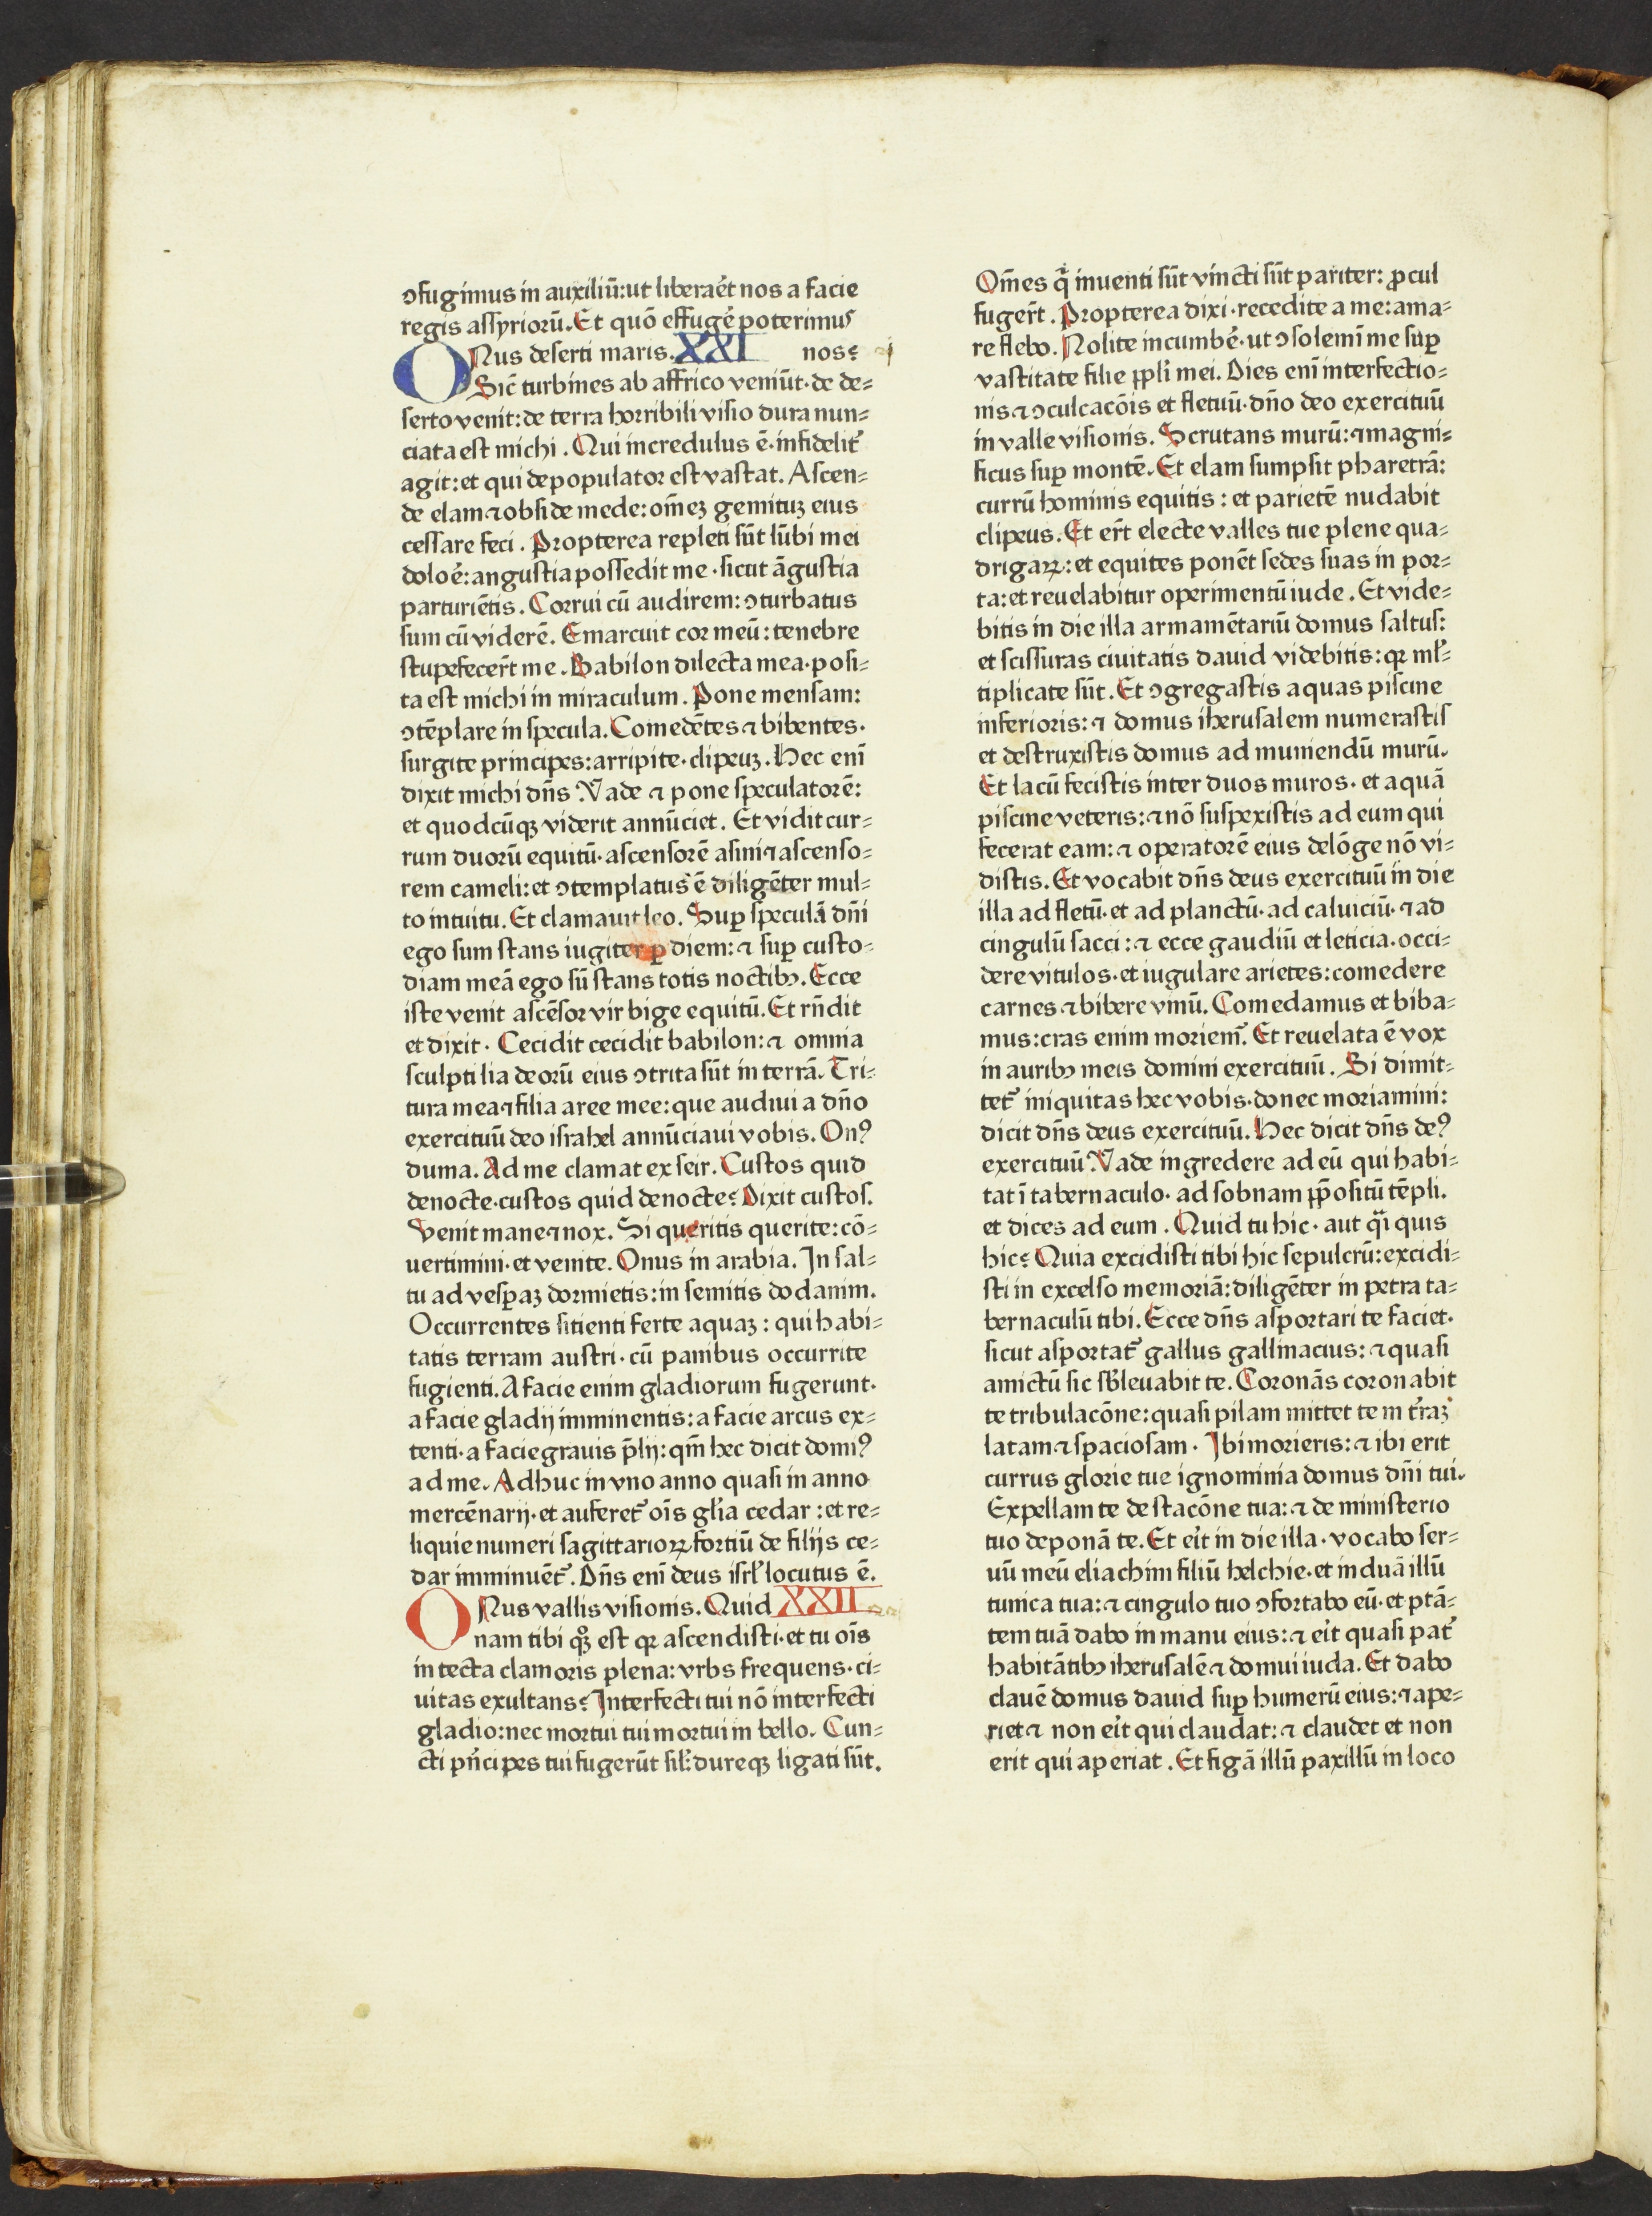 ↄfugimus in auxiliū:ut liberaēt nos a facie
regis assyriorū. Et quō effugē poterimus
ONus deserti maris. XXI nos?
Sic̄ turbines ab affrico veniūt· de de=
serto venit: de terra horribili visio dura nun=
ciata est michi . Qui incredulus ē· infidelit᷑
agit: et qui depopulator est vastat. Ascen=
de elam ⁊ obside mede: om̄eꝫ gemituꝫ eius
cessare feci . Propterea repleti sūt lūbi mei
doloē: angustia possedit me · sicut āgustia
parturiētis . Corrui cū audirem: ↄturbatus
sum cū viderē . Emarcuit cor meū : tenebre
stupefecer̄t me . Babilon dilecta mea· posi=
ta est michi in miraculum . Pone mensam:
ↄtēplare in specula. Comedētes ⁊ bibentes·
surgite principes: arripite· clipeuꝫ . Hec eni̅
dixit michi dn̄s Vade ⁊ pone speculatorē:
et quodcūqꝫ viderit annūciet . Et vidit cur=
rum duorū equitū· ascensorē asini ⁊ ascenso=
rem cameli: et ↄtemplatus ē diligēter mul=
to intuitu . Et clamauit leo. Suꝑ speculā dn̄i
ego sum stans iugiter ꝑ diem: ⁊ suꝑ custo=
diam meā ego sū stans totis noctibꝯ. Ecce
iste venit ascēsor vir bige equitū. Et rn̄dit
et dixit · Cecidit cecidit babilon: ⁊ omnia
sculptilia deorū eius ↄtrita sūt in terrā. Tri=
tura mea ⁊ filia aree mee: que audiui a dn̄o
exercituū deo israhel annūciaui vobis. Onꝰ
duma. Ad me clamat ex seir. Custos quid
denocte· custos quid denocte? Dixit custos.
Venit mane ⁊ nox. Si queritis querite: cō=
uertimini· et venite. Onus in arabia. In sal=
tu ad vesꝑaꝫ dormietis: in semitis dodanim.
Occurrentes sitienti ferte aquaꝫ : qui habi=
tatis terram austri· cū panibus occurrite
fugienti. A facie enim gladiorum fugerunt·
a facie gladij imminentis: a facie arcus ex=
tenti· a facie grauis p̄lij: qm̄ hec dicit domiꝰ
ad me. Adhuc in vno anno quasi in anno
mercēnarij· et auferet᷑ oīs gl̄ia cedar : et re=
liquie numeri sagittarioꝝ fortiū de filijs ce=
dar imminuēt᷑. Dn̄s eni̅ deus isrl̄ locutus ē.
ONus vallis visionis. Quid XXII
nam tibi qꝫ est qꝛ ascendisti· et tu oīs
in tecta clamoris plena: vrbs frequens· ci=
uitas exultans? Interfecti tui nō interfecti
gladio: nec mortui tui mortui in bello. Cun=
cti pn̄cipes tui fugerūt sil̄: dureqꝫ ligati sūt.
Om̄es q̄ inuenti sūt vincti sūt pariter: ꝓcul
fuger̄t . Propterea dixi· recedite a me: ama=
re flebo. Nolite incumbē· ut ↄsolemi̅ me suꝑ
vastitate filie ppl̄i mei. Dies eni̅ interfectio=
nis ⁊ ↄculcacōis et fletuū· dn̄o deo exercituū
in valle visionis. Scrutans murū: ⁊ magni=
ficus suꝑ montē. Et elam sumpsit pharetrā:
currū hominis equitis : et parietē nudabit
clipeus. Et er̄t electe valles tue plene qua=
drigaꝝ: et equites ponēt sedes suas in por=
ta: et reuelabitur operimentū iude . Et vide=
bitis in die illa armamētariū domus saltus:
et scissuras ciuitatis dauid videbitis: qꝛ ml̄=
tiplicate sūt . Et ↄgregastis aquas piscine
inferioris: ⁊ domus iherusalem numerastis
et destruxistis domus ad muniendū murū.
Et lacū fecistis inter duos muros· et aquā
piscine veteris: ⁊ nō suspexistis ad eum qui
fecerat eam: ⁊ operatorē eius delōge nō vi=
distis. Et vocabit dn̄s deus exercituū in die
illa ad fletū· et ad planctū· ad caluiciū· ⁊ ad
cingulū sacci : ⁊ ecce gaudiū et leticia· occi=
dere vitulos· et iugulare arietes: comedere
carnes ⁊ bibere vinū. Comedamus et biba=
mus: cras enim moriem᷑. Et reuelata ē vox
in auribꝯ meis domini exercituū . Si dimit=
tet᷑ iniquitas hec vobis· donec moriamini:
dicit dn̄s deus exercituū. Hec dicit dn̄s deꝰ
exercituū Vade ingredere ad eū qui habi=
tat ī tabernaculo· ad sobnam p̄positū tēpli.
et dices ad eum . Quid tu hic · aut q̄i quis
hic? Quia excidisti tibi hic sepulcrū: excidi=
sti in excelso memoriā: diligēter in petra ta=
bernaculū tibi. Ecce dn̄s asportari te faciet·
sicut asportat᷑ gallus gallinacius: ⁊ quasi
amictū sic sb̄leuabit te. Coronās coronabit
te tribulacōne: quasi pilam mittet te in t̄raꝫ
latam ⁊ spaciosam · Ibi morieris: ⁊ ibi erit
currus glorie tue ignominia domus dn̄i tui.
Expellam te de stacōne tua: ⁊ de ministerio
tuo deponā te. Et eīt in die illa · vocabo ser=
uū meū eliachim filiū helchie· et induā illū
tunica tua: ⁊ cingulo tuo ↄfortabo eū· et ptā=
tem tuā dabo in manu eius: ⁊ eīt quasi pat᷑
habitātibꝯ iherusalē ⁊ domui iuda. Et dabo
clauē domus dauid suꝑ humerū eius: ⁊ ape=
riet ⁊ non eīt qui claudat: ⁊ claudet et non
erit qui aperiat . Et figā illū paxillū in loco